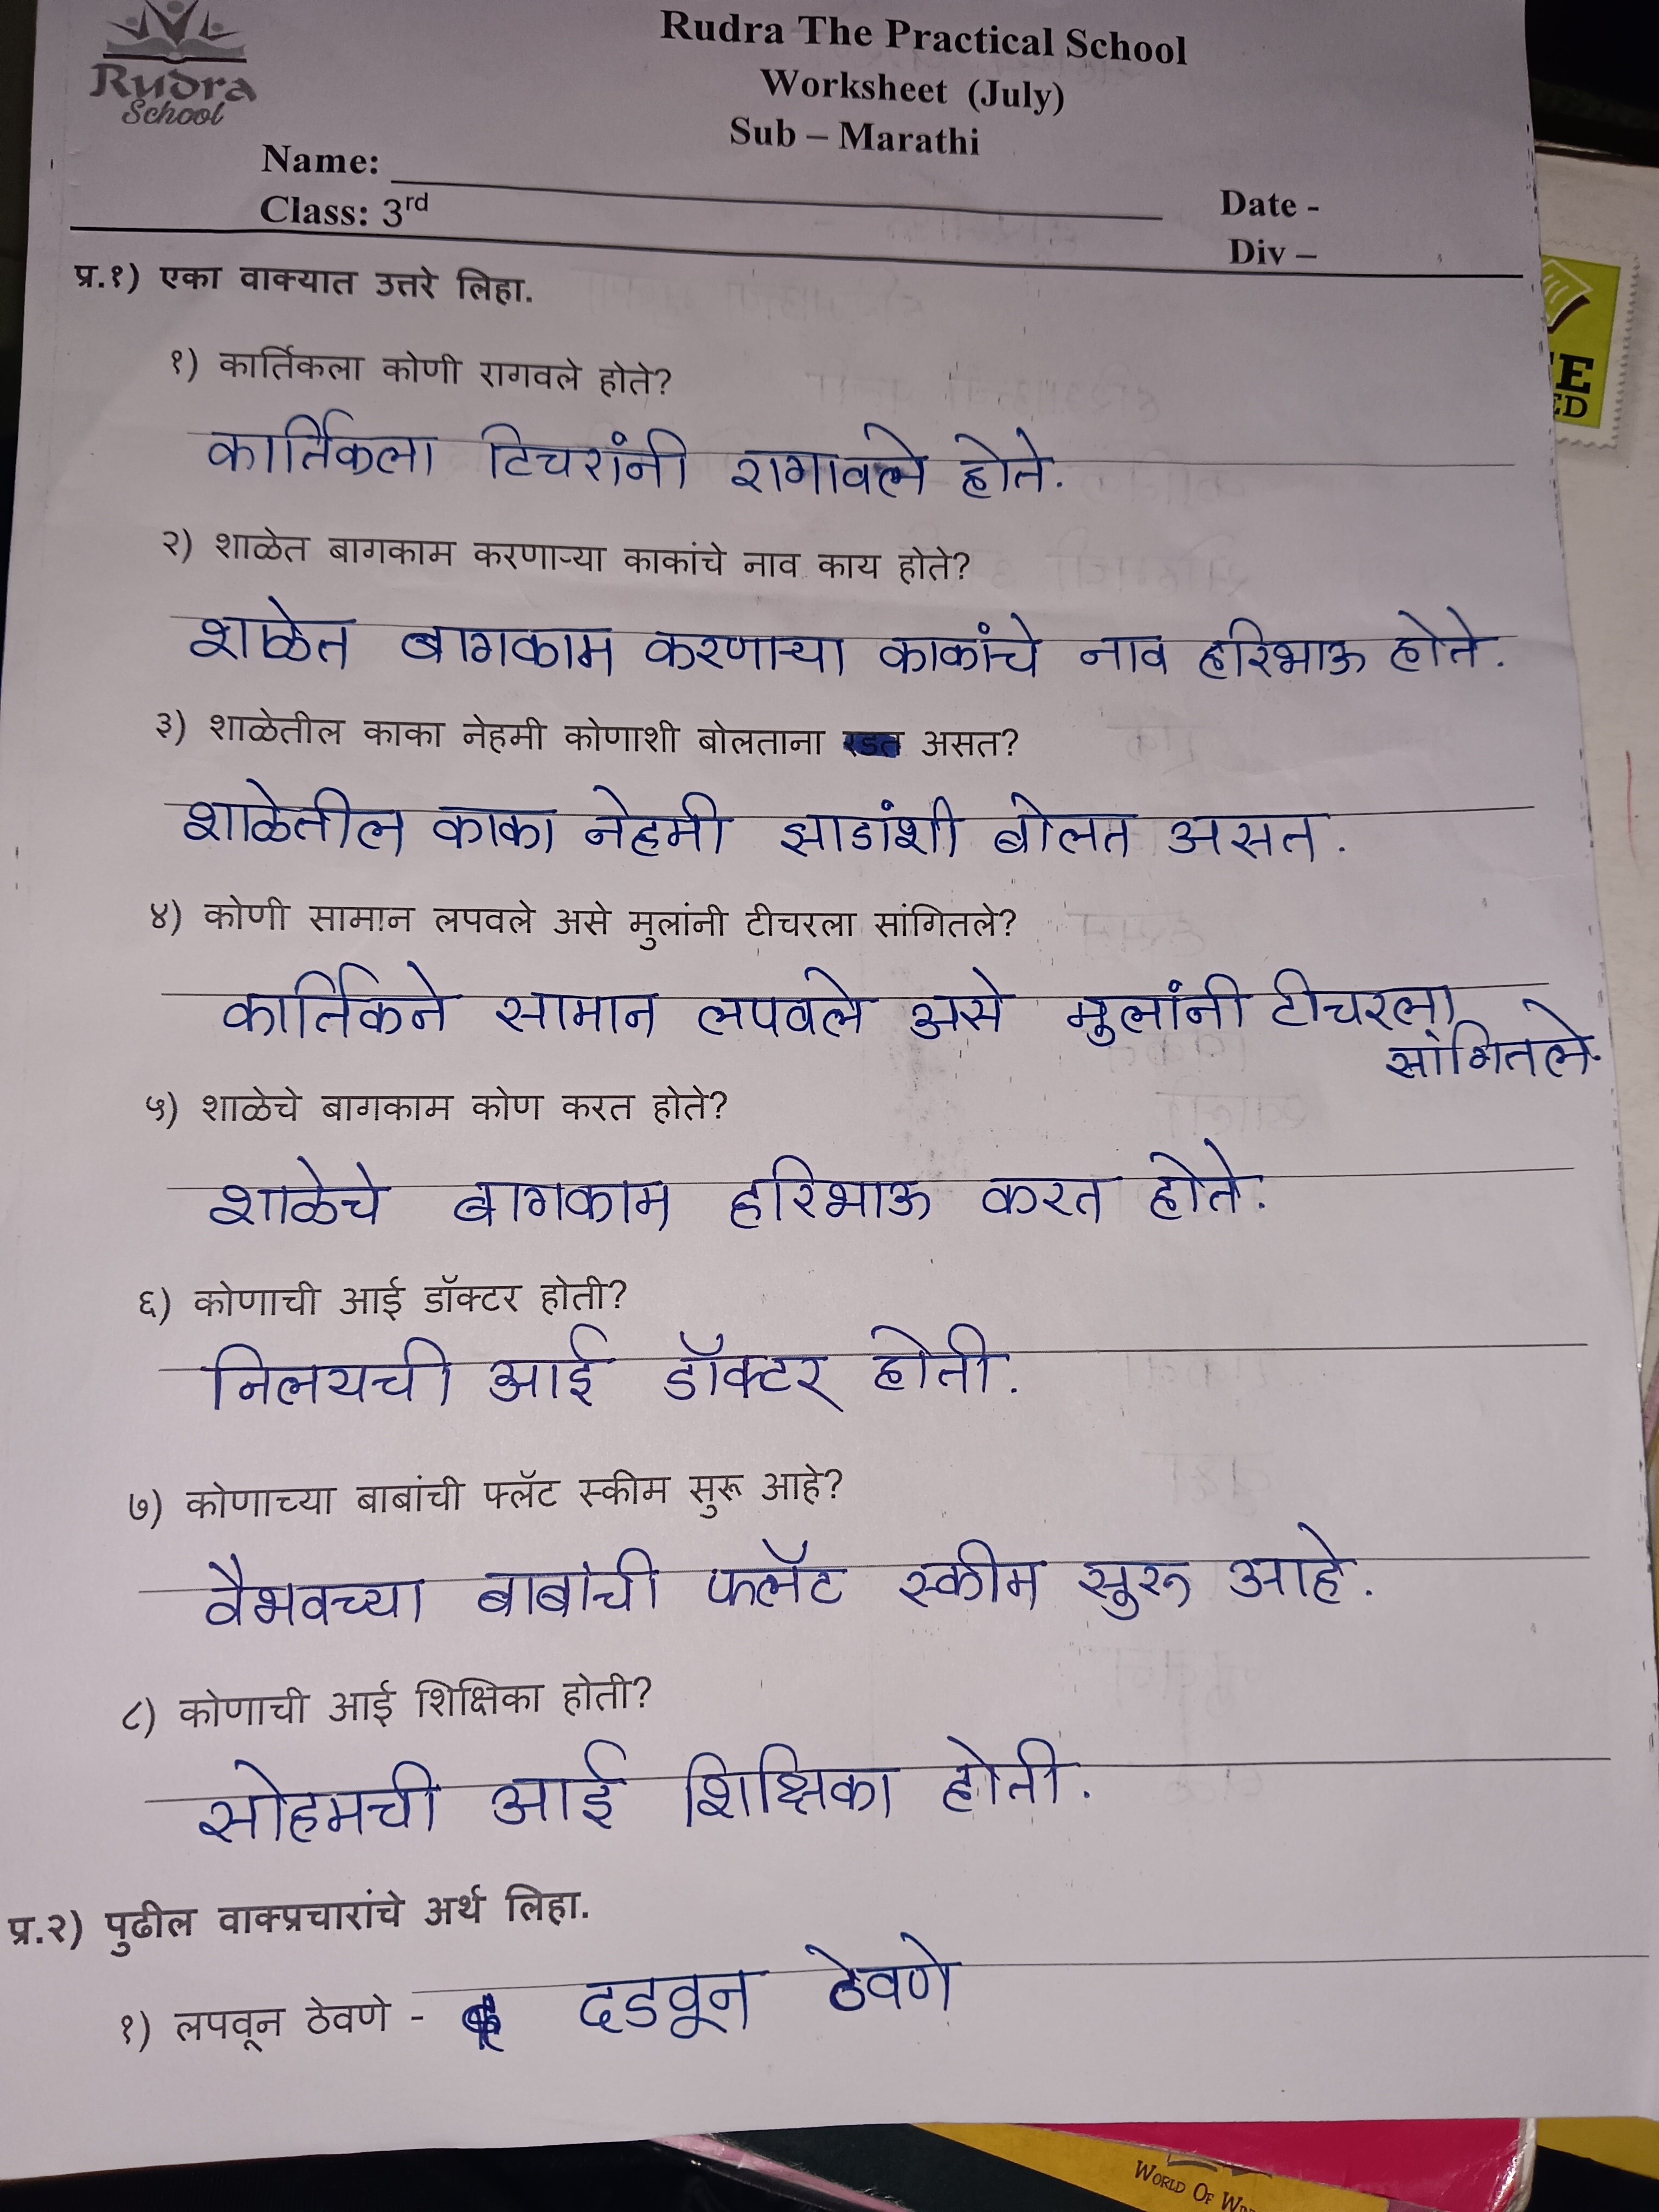 Rudra
School
Rudra The Practical School
Worksheet (July)
Sub – Marathi
Name:
Class: 3rd
Date -
Div –
प्र.१) एका वाक्यात उत्तरे लिहा.
१) कार्तिकला कोणी रागवले होते?
कार्तिकला टिचरांनी रागावले होते.
२) शाळेत बागकाम करणाऱ्या काकांचे नाव काय होते?
शाळेत बागकाम करणाऱ्या काकांचे नाव हरिभाऊ होते.
३) शाळेतील काका नेहमी कोणाशी बोलताना असत?
शाळेतील काका नेहमी झाडांशी बोलत असत.
४) कोणी सामान लपवले असे मुलांनी टीचरला सांगितले?
कार्तिकने सामान लपवले असे मुलांनी टीचरला
सांगितले.
५) शाळेचे बागकाम कोण करत होते?
शाळेचे बागकाम हरिभाऊ करत होते.
६) कोणाची आई डॉक्टर होती?
निलयची आई डॉक्टर होती.
७) कोणाच्या बाबांची फ्लॅट स्कीम सुरू आहे?
वैभवच्या बाबांची फ्लॅट स्कीम सुरू आहे.
८) कोणाची आई शिक्षिका होती?
सोहमची आई शिक्षिका होती.
प्र.२) पुढील वाक्प्रचारांचे अर्थ लिहा.
१) लपवून ठेवणे - दडवून ठेवणे
WORLD OF